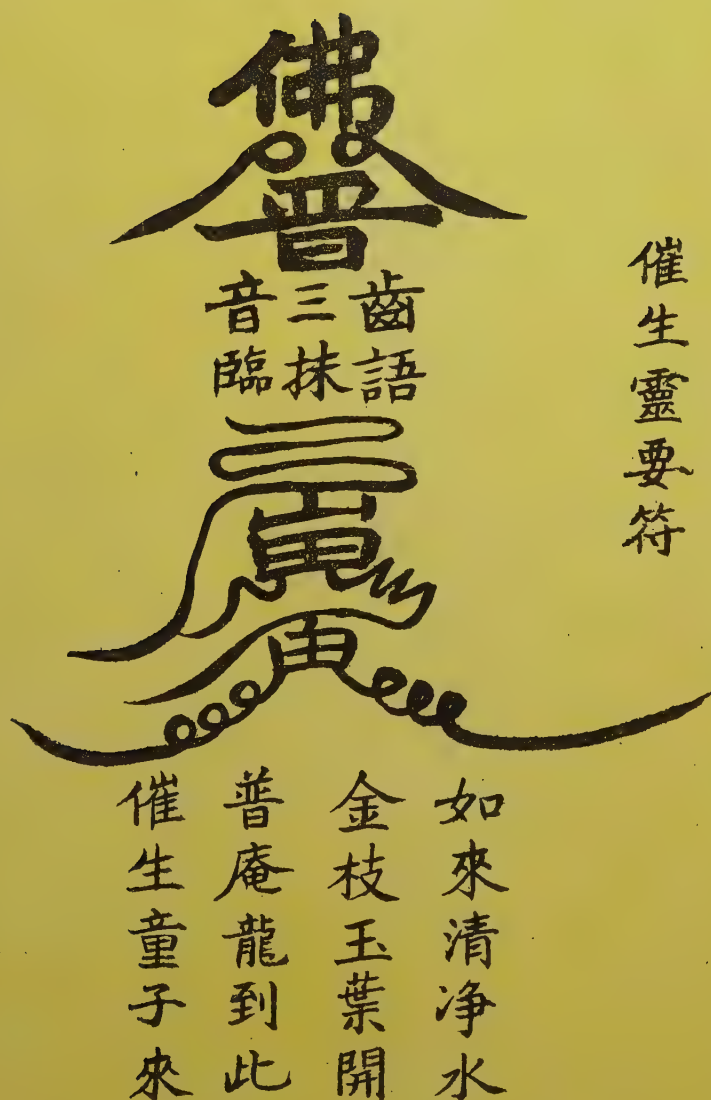 催生靈要符
佛
普
齒語
三抹
音臨
如來清净水
金枝玉葉開
普庵龍到此
催生童子來